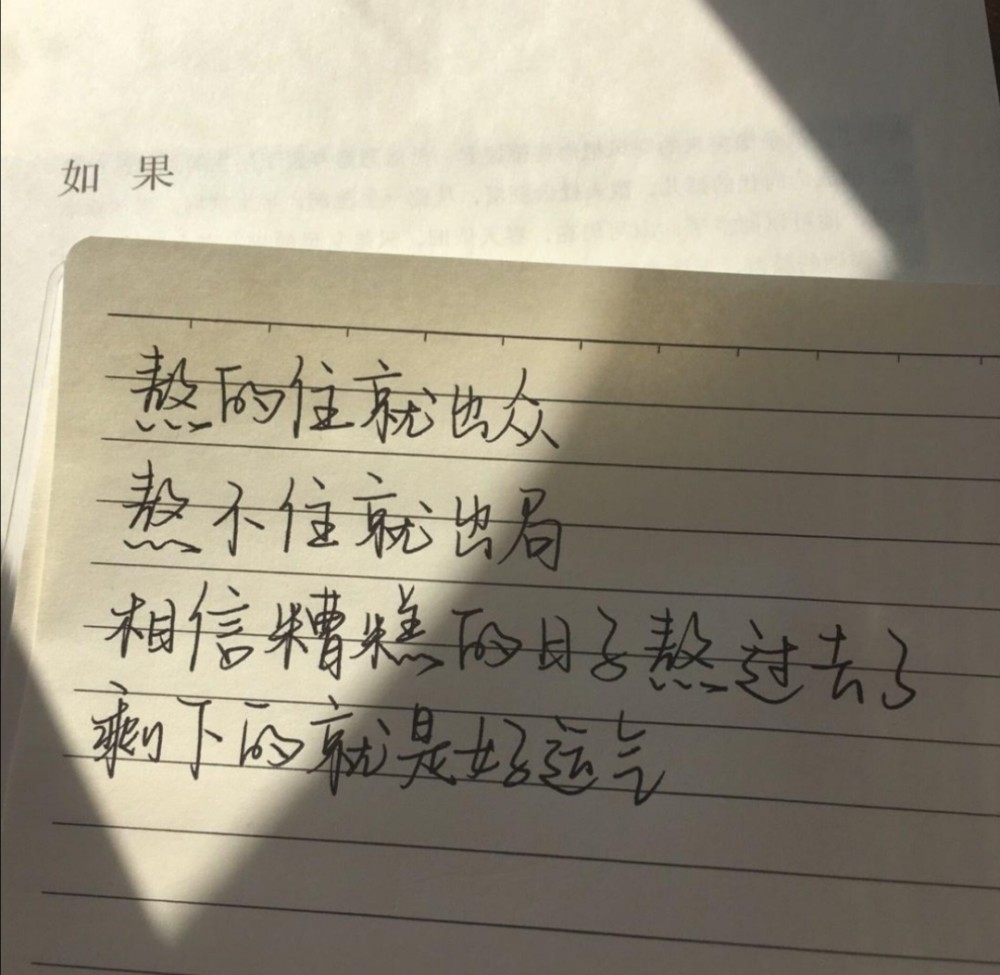 如果
熬的住就出众
熬不住就出局
相信糟糕的日子熬过去了
剩下的就是好运气